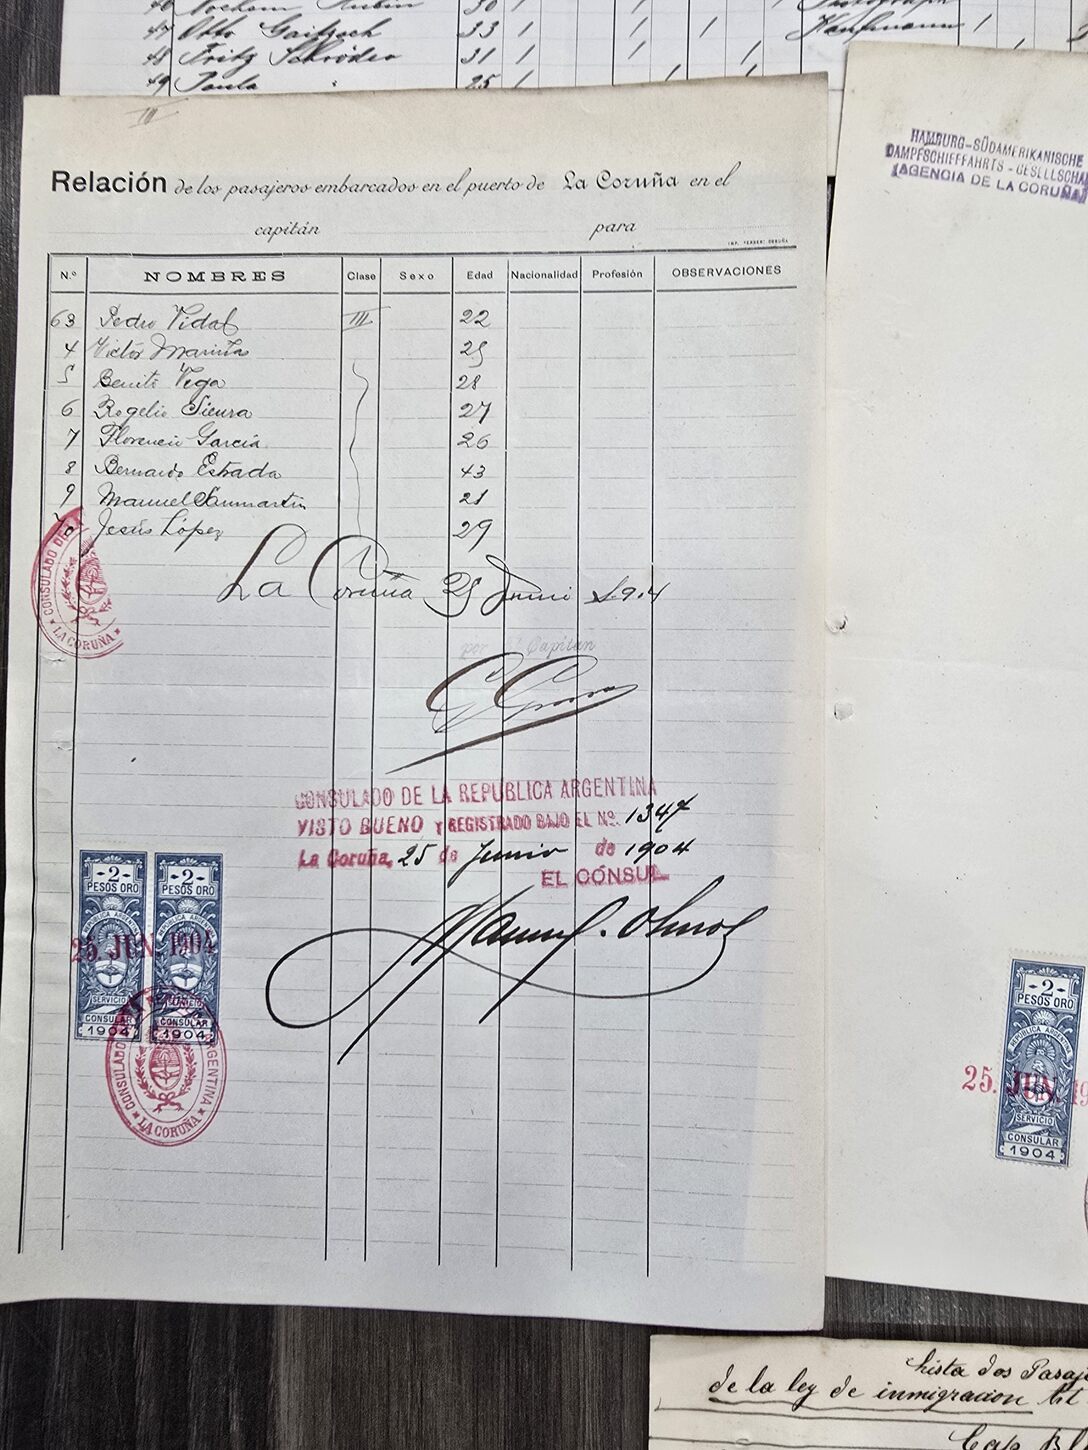 33
47 Otto
48 Fritz Schröder 31
49 Paula 25
Kaufmann
HAMBURG-SÜDAMERIKANISCHE
DAMPFSCHIFFFAHRTS-GESELLSCHA
(AGENCIA DE LA CORUÑA)
III
Relación de los pasajeros embarcados en el puerto de La Coruña en el
capitán para
N.º NOMBRES Clase Sexo Edad Nacionalidad Profesión OBSERVACIONES
63 Pedro Vidal III 22
4 Victor Mariñas 25
5 Benito Vega 28
6 Rogelio Sieura 27
7 Florencio García 26
8 Bernardo Estrada 43
9 Manuel Sanmartin 21
70 Jesús López 29
CONSULADO DE LA
LA CORUÑA
La Coruña 25 Junio 1904
por el Capitán
CONSULADO DE LA REPÚBLICA ARGENTINA
VISTO BUENO y REGISTRADO BAJO EL Nº. 1347
La Coruña, 25 de Junio de 1904
EL CÓNSUL
Manuel
2 2
PESOS ORO PESOS ORO
REPÚBLICA ARGENTINA REPÚBLICA ARGENTINA
25. JUN. 1904
SERVICIO
CONSULAR CONSULAR
1904 1904
CONSULADO ARGENTINA
LA CORUÑA
2
PESOS ORO
REPÚBLICA ARGENTINA
25. JUN. 19
SERVICIO
CONSULAR
1904
Lista dos Pasaje
de la ley de inmigracion
Cap